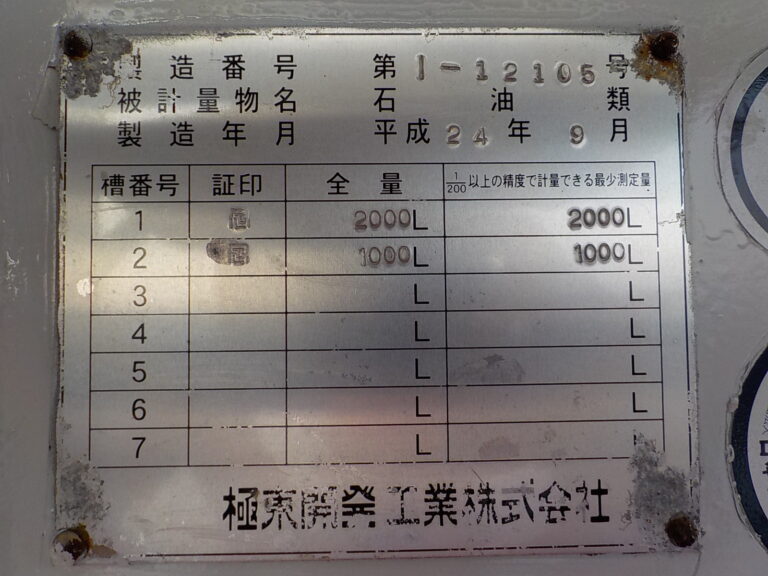 製造番号 第I-12105号
被計量物名 石油類
製造年月 平成24年9月
槽番号 証印 全量 1/200以上の精度で計量できる最少測定量
1 2000L 2000L
2 1000L 1000L
3 L L
4 L L
5 L L
6 L L
7 L L
極東開発工業株式会社